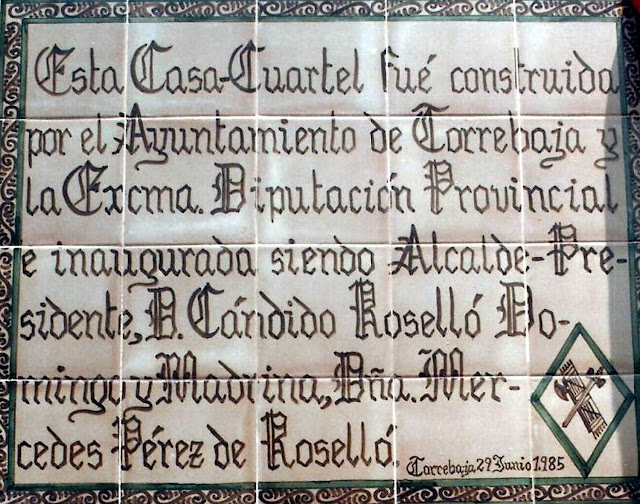 Esta Casa-Cuartel fué construida
por el Ayuntamiento de Torrebaja y
la Excma. Diputación Provincial
e inaugurada siendo Alcalde-Pre-
sidente, D. Cándido Roselló Do-
mingo y Madrina, Dña. Mer-
cedes Pérez de Roselló.
Torrebaja 29 Junio 1.985